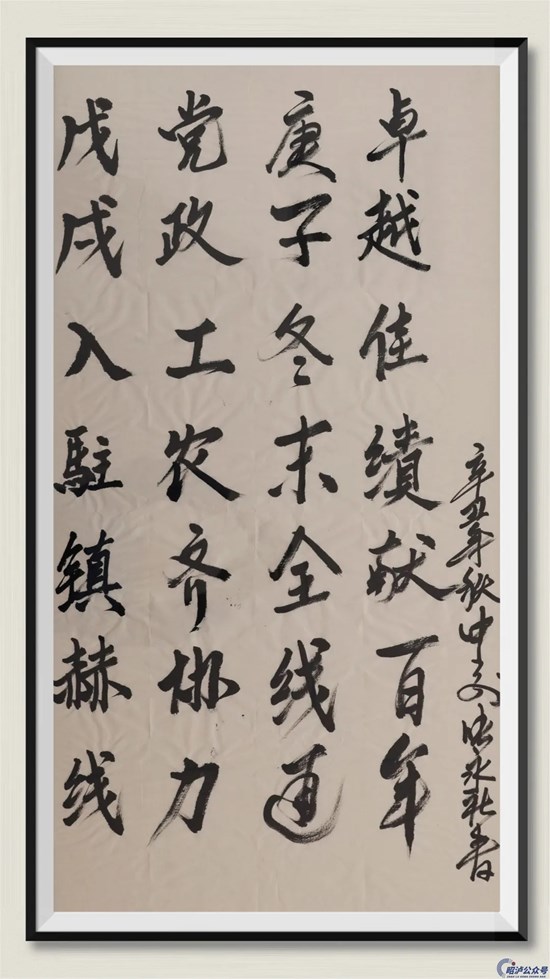 戊戌入駐镇赫线
党政工农齐协力
庚子冬末全线通
卓越佳績献百年
辛丑年秋中交永书
昭泸公众号